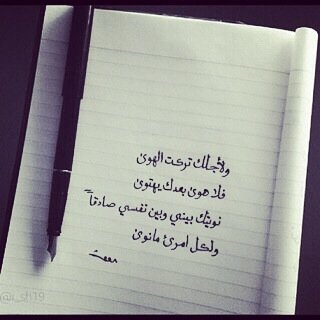 ولأجلك تركت الهوى
فلا هوى بعدك يهتوى
نويتك بيني وبين نفسي صادقاً
ولكل امرئ مانوى
@i_sh19